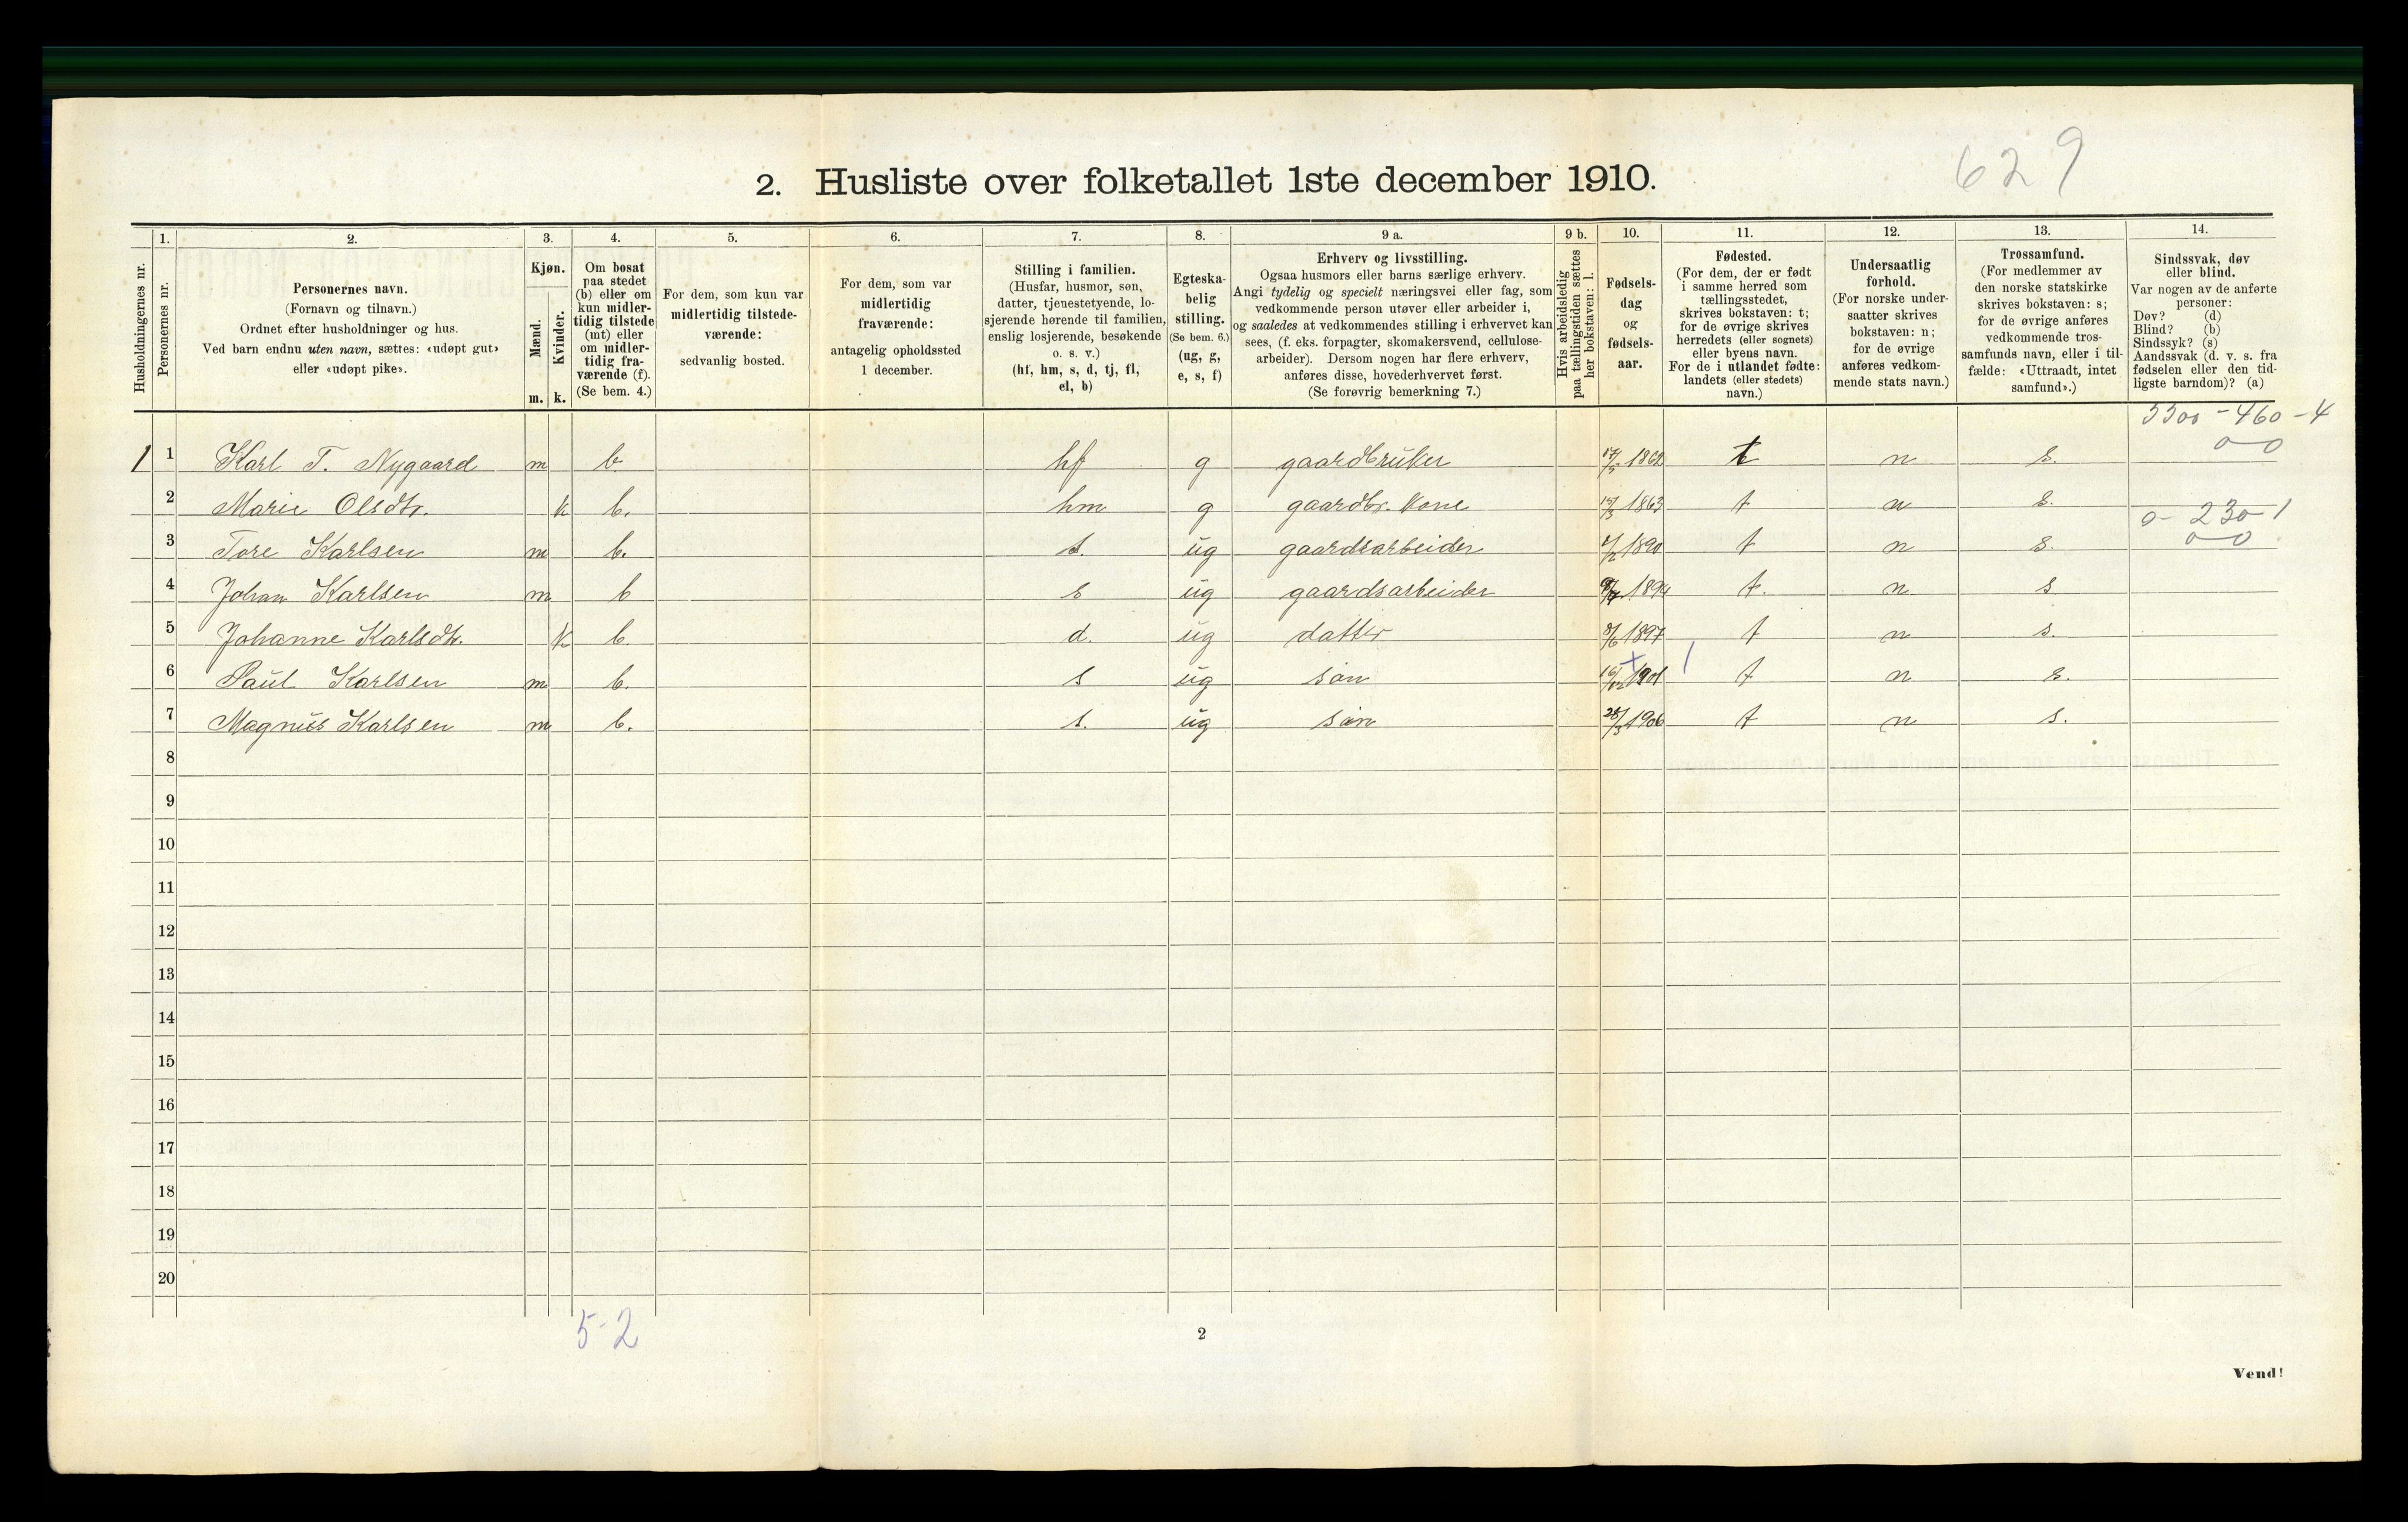 629
2. Husliste over folketallet 1ste december 1910.
Husholdningernes nr.
1.
Personernes nr.
2.
Personernes navn.
(Fornavn og tilnavn.)
Ordnet efter husholdninger og hus.
Ved barn endnu uten navn, sættes: «udøpt gut»
eller «udøpt pike».
3.
Kjøn.
Mænd.
Kvinder.
m. k.
4.
Om bosat
paa stedet
(b) eller om
kun midler-
tidig tilstede
(mt) eller
om midler-
tidig fra-
værende (f).
(Se bem. 4.)
5.
For dem, som kun var
midlertidig tilstede-
værende:
sedvanlig bosted.
6.
For dem, som var
midlertidig
fraværende:
antagelig opholdssted
1 december.
7.
Stilling i familien.
(Husfar, husmor, søn,
datter, tjenestetyende, lo-
sjerende hørende til familien,
enslig losjerende, besøkende
o. s. v.)
(hf, hm, s, d, tj, fl,
el, b)
8.
Egteska-
belig
stilling.
(Se bem. 6.)
(ug, g,
e, s, f)
9 a.
Erhverv og livsstilling.
Ogsaa husmors eller barns særlige erhverv.
Angi tydelig og specielt næringsvei eller fag, som
vedkommende person utøver eller arbeider i,
og saaledes at vedkommendes stilling i erhvervet kan
sees, (f. eks. forpagter, skomakersvend, cellulose-
arbeider). Dersom nogen har flere erhverv,
anføres disse, hovederhvervet først.
(Se forøvrig bemerkning 7.)
9 b.
Hvis arbeidsledig
paa tællingstiden sættes
her bokstaven: l.
10.
Fødsels-
dag
og
fødsels-
aar.
11.
Fødested.
(For dem, der er født
i samme herred som
tællingsstedet,
skrives bokstaven: t;
for de øvrige skrives
herredets (eller sognets)
eller byens navn.
For de i utlandet fødte:
landets (eller stedets)
navn.)
12.
Undersaatlig
forhold.
(For norske under-
saatter skrives
bokstaven: n;
for de øvrige
anføres vedkom-
mende stats navn.)
13.
Trossamfund.
(For medlemmer av
den norske statskirke
skrives bokstaven: s;
for de øvrige anføres
vedkommende tros-
samfunds navn, eller i til-
fælde: «Uttraadt, intet
samfund».)
14.
Sindssvak, døv
eller blind.
Var nogen av de anførte
personer:
Døv? (d)
Blind? (b)
Sindssyk? (s)
Aandssvak (d. v. s. fra
fødselen eller den tid-
ligste barndom)? (a)
5500 - 460 - 4
0 - 0
1 1 Karl T. Nygaard m b hf g gaardbruker 1862 t n s.
2 Marie Olsdtr. k b. hm g gaardbr. kone 15/3 1863 t n s.
0 - 230 - 1
3 Tore Karlsen m b. s. ug gaardsarbeider 1890 t n s.
0 - 0
4 Johan Karlsen m b s ug gaardsarbeider 1894 t. n s
5 Johanne Karlsdtr. k b. d. ug datter 8/6 1897 t n s.
6 Paul Karlsen m b. s ug søn 16/12 1901 t n s.
7 Magnus Karlsen m b. s. ug søn 28/3 1906 t n s.
8
9
10
11
12
13
14
15
16
17
18
19
20
5-2
2
Vend!